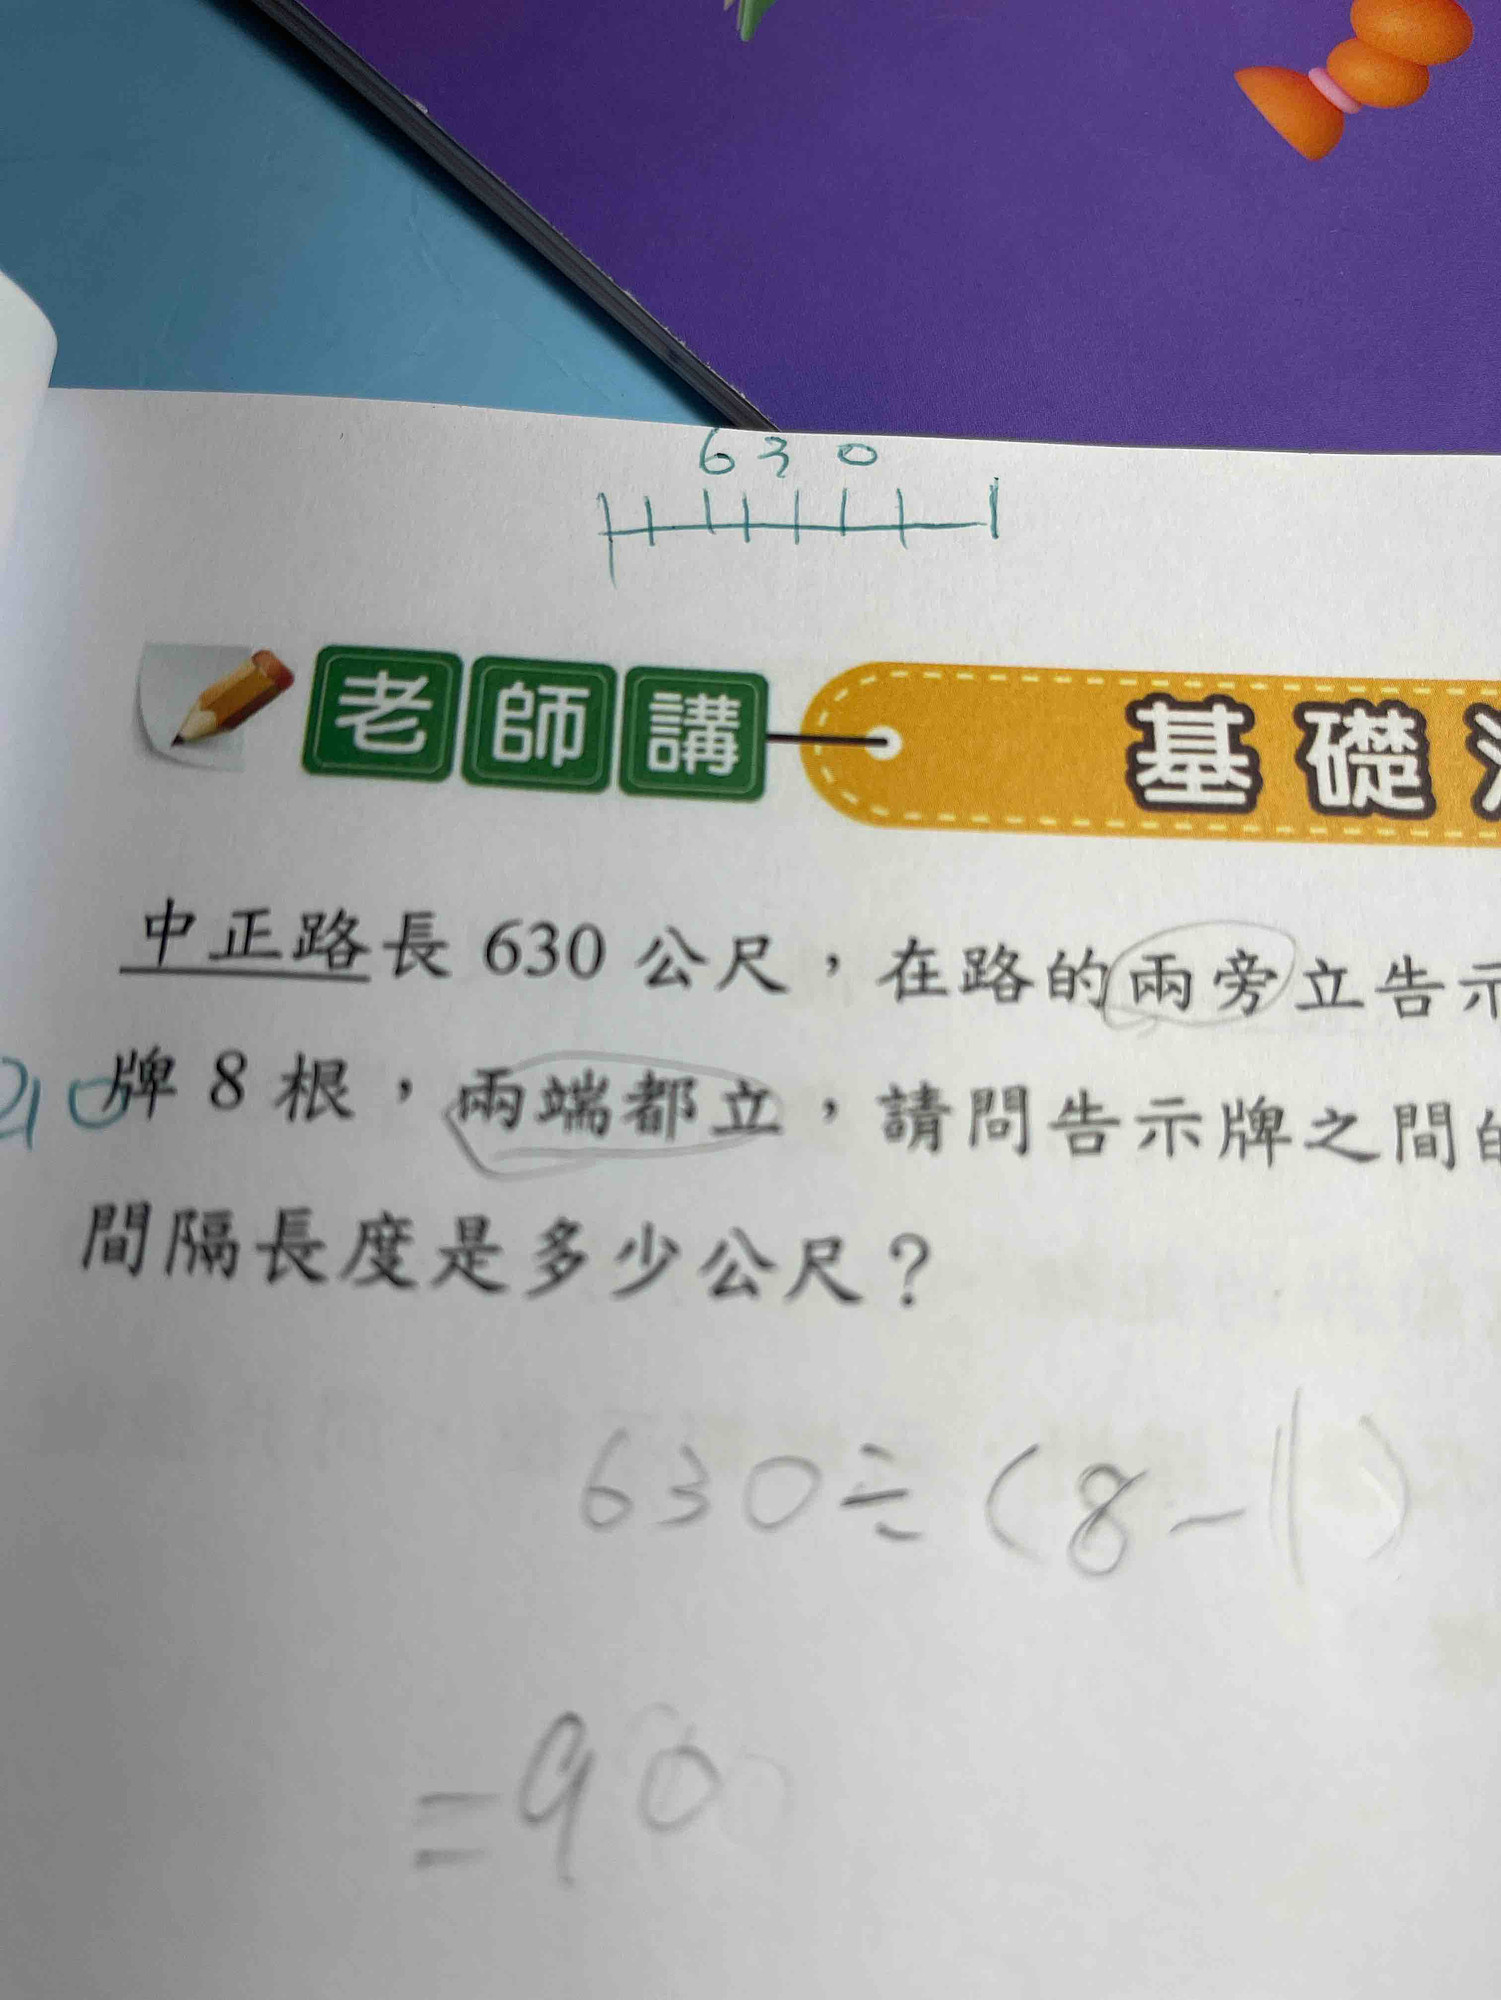 630
老師講 基礎
中正路長 630 公尺，在路的兩旁立告示
牌 8 根，兩端都立，請問告示牌之間的
間隔長度是多少公尺？
630÷(8-1)
=90